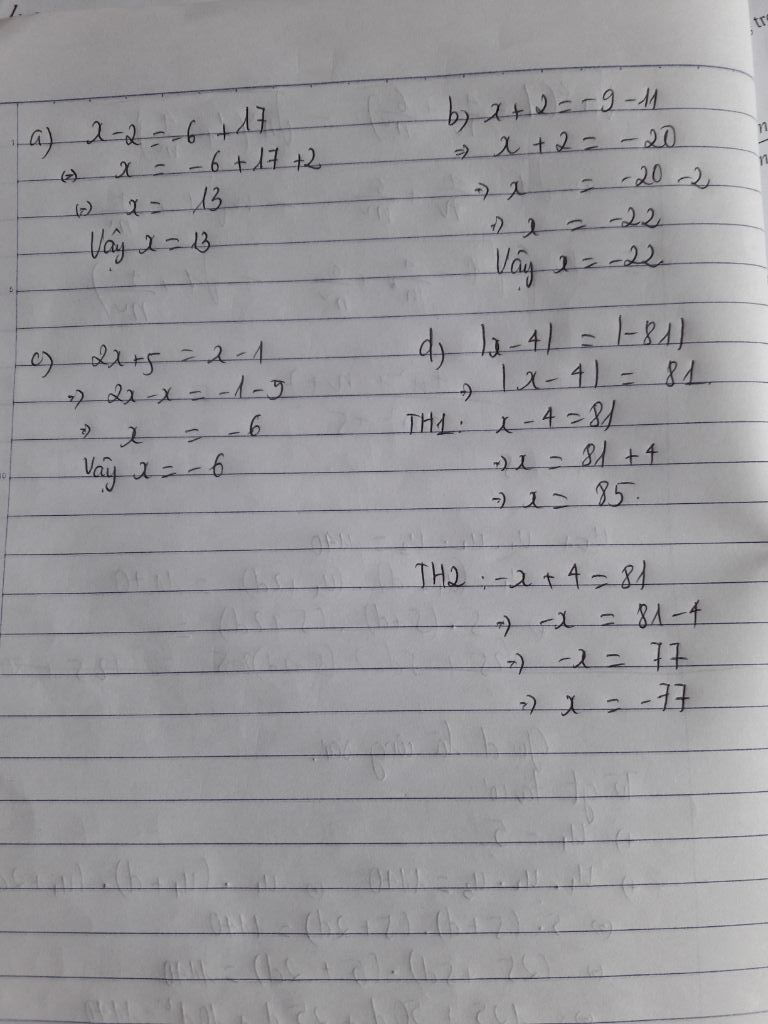 a) x - 2 = -6 + 17
(=) x = -6 + 17 + 2
(=) x = 13
Vậy x = 13
b) x + 2 = -9 - 11
=) x + 2 = -20
=) x = -20 - 2
=) x = -22
Vậy x = -22
c) 2x + 5 = x - 1
=) 2x - x = -1 - 5
=) x = -6
Vậy x = -6
d) |x - 4| = |-81|
=) |x - 4| = 81
TH1: x - 4 = 81
=) x = 81 + 4
=) x = 85.
TH2: -x + 4 = 81
=) -x = 81 - 4
=) -x = 77
=) x = -77